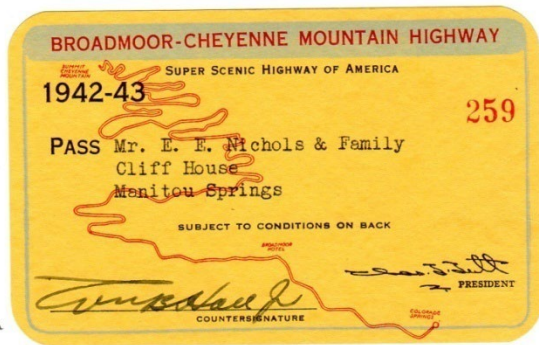 BROADMOOR-CHEYENNE MOUNTAIN HIGHWAY
SUMMIT
CHEYENNE
MOUNTAIN
SUPER SCENIC HIGHWAY OF AMERICA
1942-43
259
PASS Mr. E. E. Nichols & Family
Cliff House
Manitou Springs
SUBJECT TO CONDITIONS ON BACK
BROADMOOR
HOTEL
PRESIDENT
COLORADO
SPRINGS
COUNTERSIGNATURE